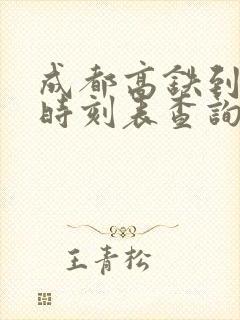 成都高鉄到
時刻表查詢
王青松